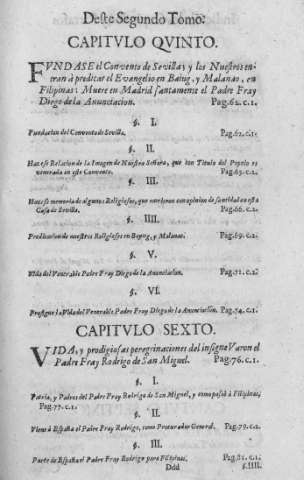 Deste Segundo Tomo.
CAPITVLO QVINTO.
FVNDASE el Convento de Sevilla; y los Nuestros en-
tran à predicar el Evangelio en Baiug, y Malanao, en
Filipinas: Muere en Madrid santamente el Padre Fray
Diego de la Anunciacion. Pag.62.c.1.
§. I.
Fundacion del Convento de Sevilla. Pag.62.c.1.
§. II.
Hacese Relacion de la Imagen de Nuestra Señora, que con Titulo del Populo es
venerada en este Convento. Pag.63.c.1.
§. III.
Hacese memoria de algunos Religiosos, que con opinion de santidad en esta
Casa de Sevilla. Pag.66.c.1.
§. IIII.
Predicacion de nuestros Religiosos en Bayug, y Malanao. Pag.69.c.2.
§. V.
Vida del Venerable Padre Fray Diego de la Anunciacion. Pag.71.c.2.
§. VI.
Prosigue la Vida del Venerable Padre Fray Diego de la Anunciacion. Pag.74.c.1.
CAPITVLO SEXTO.
VIDA, y prodigiosas peregrinaciones del insigne Varon el
Padre Fray Rodrigo de San Miguel. Pag.76.c.1.
§. I.
Patria, y Padres del Padre Fray Rodrigo de San Miguel, y como passò à Filipinas.
Pag.77.c.1.
§. II.
Viene à España el Padre Fray Rodrigo, como Procurador General. Pag.79.c.2.
§. III.
Parte de España el Padre Fray Rodrigo para Filipinas. Pag.81.c.1.
Ddd §.IIII.